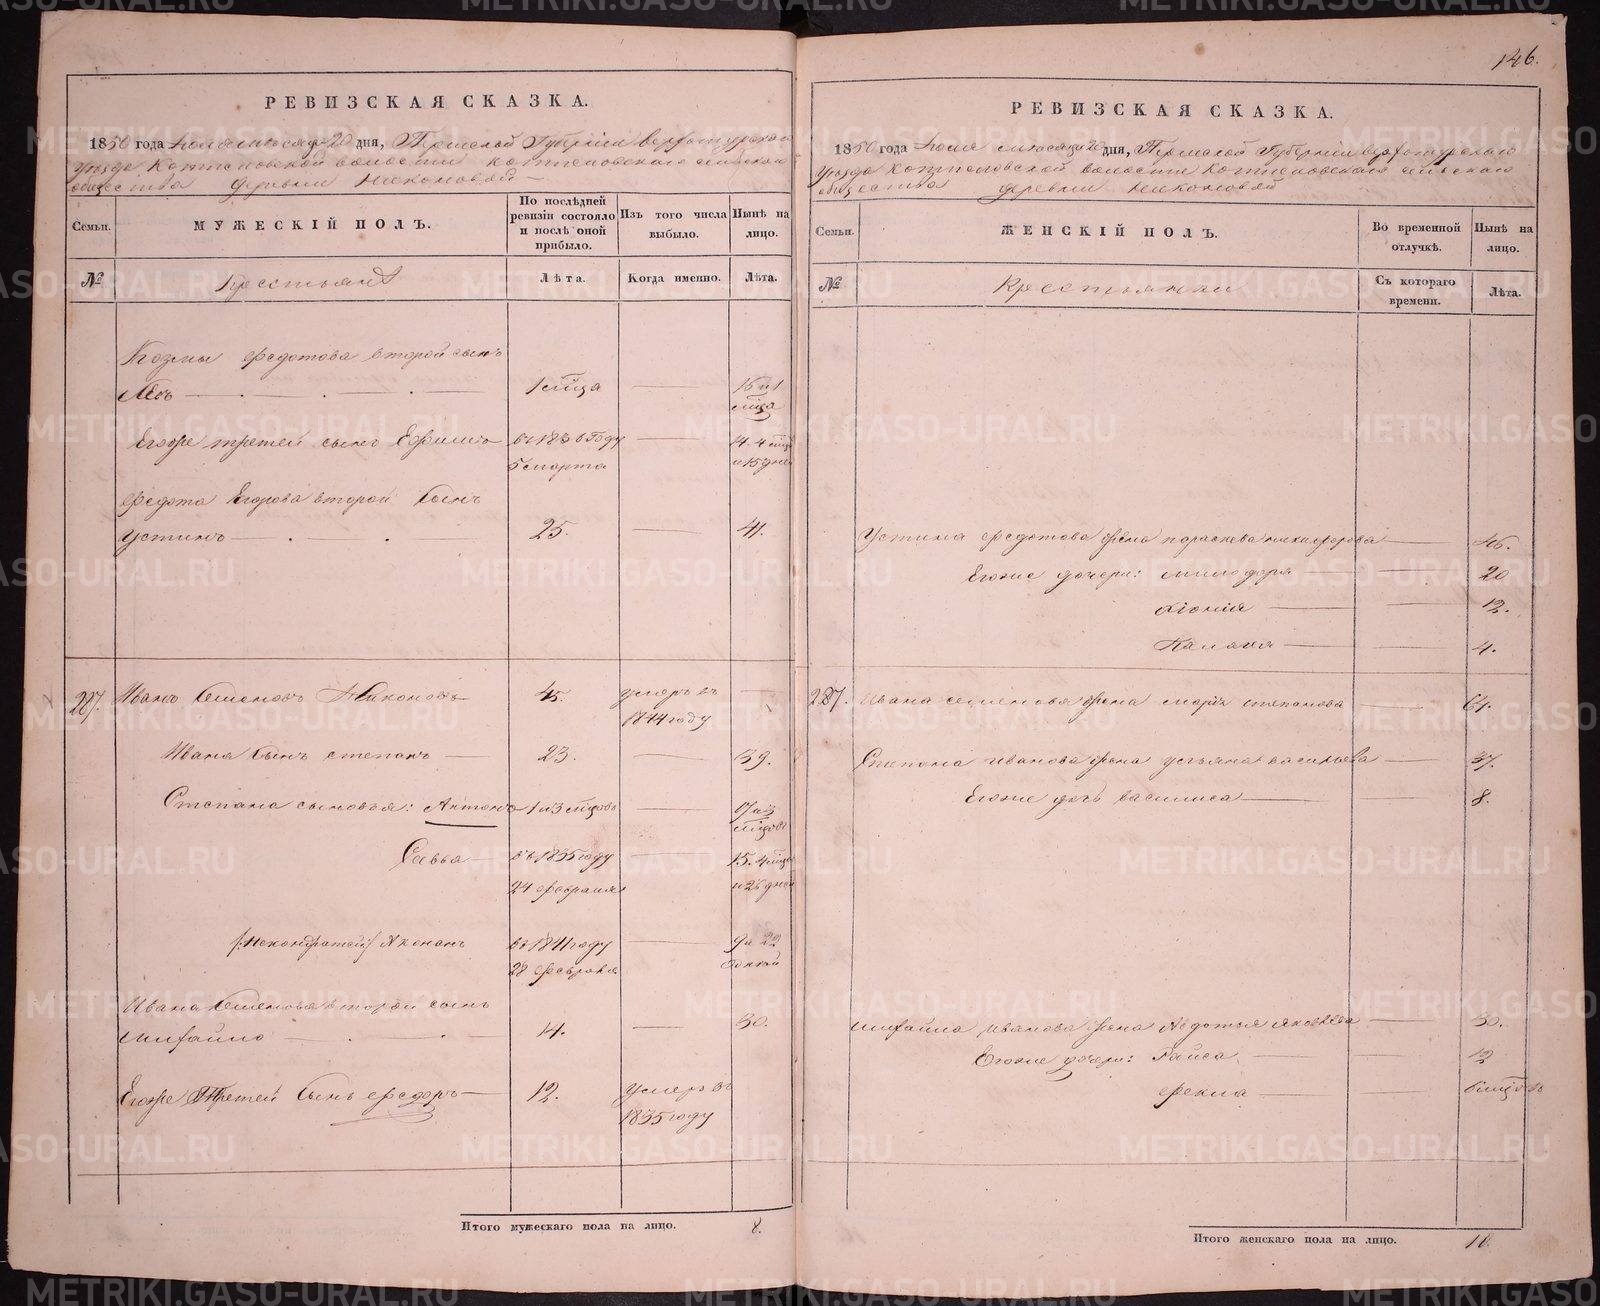 РЕВИЗСКАЯ СКАЗКА.
1850 года Іюля месяца 20 дня, Пермской Губерніи верхотурскаго
уезда Коптеловской волости коптеловскаго сельскаго
общества деревни Никоновой
Семьи.
МУЖЕСКІЙ ПОЛЪ.
По послѣдней ревизіи состояло и послѣ оной прибыло.
Изъ того числа выбыло.
Нынѣ на лицо.
№
Крестьянъ
Лѣта.
Когда именно.
Лѣта.
Козмы федотова второй сынъ
Левъ 1 мѣца 16 и 1 мѣца
Егоже третей сынъ Ефимъ въ 1836 году 14. 4 мѣц
5 марта и 15 дней
федота Егорова второй сынъ
устинъ 25. 41.
287. Иванъ Семеновъ Никоновъ 45. умеръ въ
1844 году
Ивана сынъ степанъ 23. 39.
Степана сыновья: Антонъ 1 и 3 мѣцовъ 17 и 3
мѣцовъ
Савва въ 1835 году 15. 4 мѣц
24 февраля и 26 дней
въ 1841 году 9 и 22
28 февраля
Ивана Семенова второй сынъ
михайло 14. 30.
Егоже Третей Сынъ федоръ 12. умеръ въ
1835 году
Итого мужескаго пола на лицо. 8.
146.
РЕВИЗСКАЯ СКАЗКА.
1850 года Іюля месяца 20 дня, Пермской Губерніи верхотурскаго
уезда Коптеловской волости Коптеловскаго сельскаго
общества деревни никоновой
Семьи.
ЖЕНСКІЙ ПОЛЪ.
Во временной отлучкѣ.
Нынѣ на лицо.
№
Крестьянки
Съ котораго времени.
Лѣта.
Устина федотова жена параскева никифорова 46.
Егоже дочери: минодора 20
хіонія 12.
4.
287. Ивана семенова жена марія степанова 61.
Степана иванова жена ульяна васильева 37.
Егоже дочь василиса 8.
михайла иванова жена Авдотья яковлева 30.
Егоже дочери: Гаиса 12
фекла 6 мѣцовъ
Итого женскаго пола на лицо. 10.
METRIKI.GASO-URAL.RU